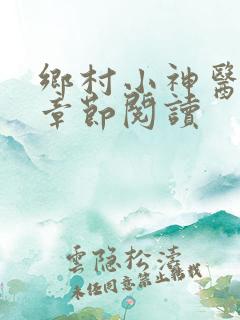 鄉村小神醫
章節閱讀
雲隐松濤
未经同意禁止転载